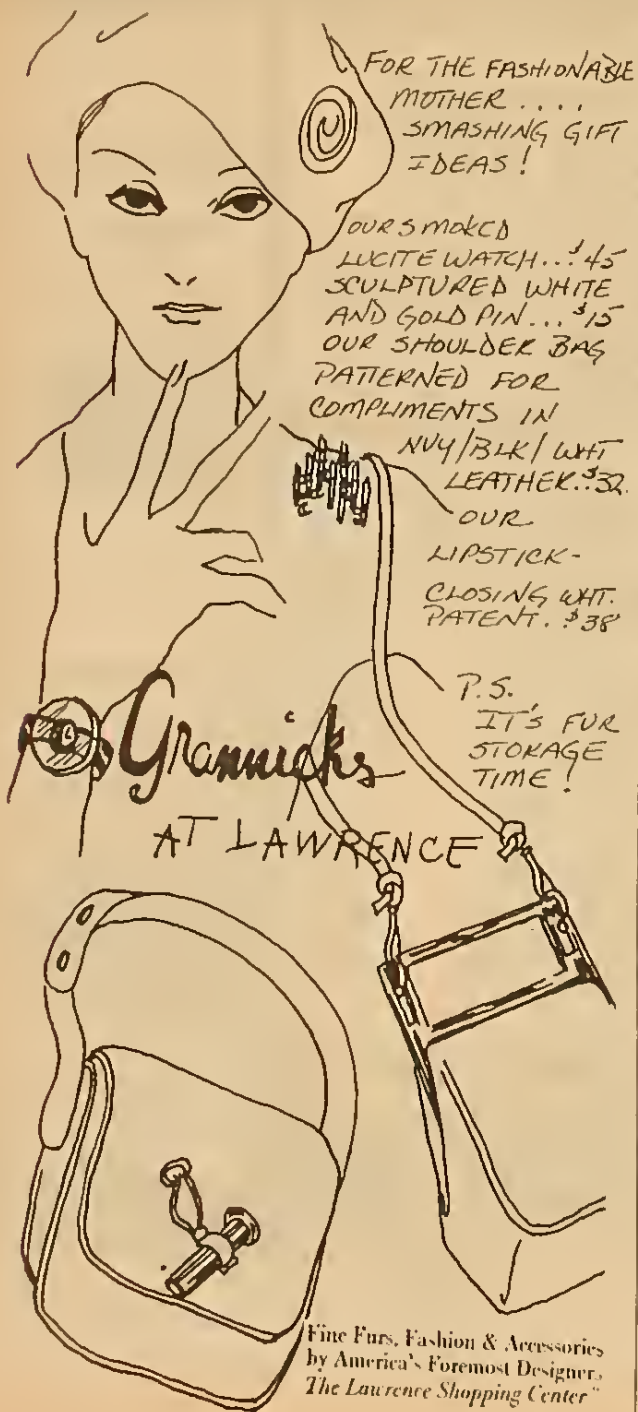 FOR THE FASHIONABLE
MOTHER ....
SMASHING GIFT
IDEAS!
OUR SMOKED
LUCITE WATCH...$45
SCULPTURED WHITE
AND GOLD PIN...$15
OUR SHOULDER BAG
PATTERNED FOR
COMPLIMENTS IN
NVY/BLK/WHT
LEATHER..$32.
OUR
LIPSTICK-
CLOSING WHT.
PATENT. $38
P.S.
IT'S FUR
STORAGE
TIME!
Grannicks
AT LAWRENCE
Fine Furs, Fashion & Accessories
by America's Foremost Designer.
The Lawrence Shopping Center"